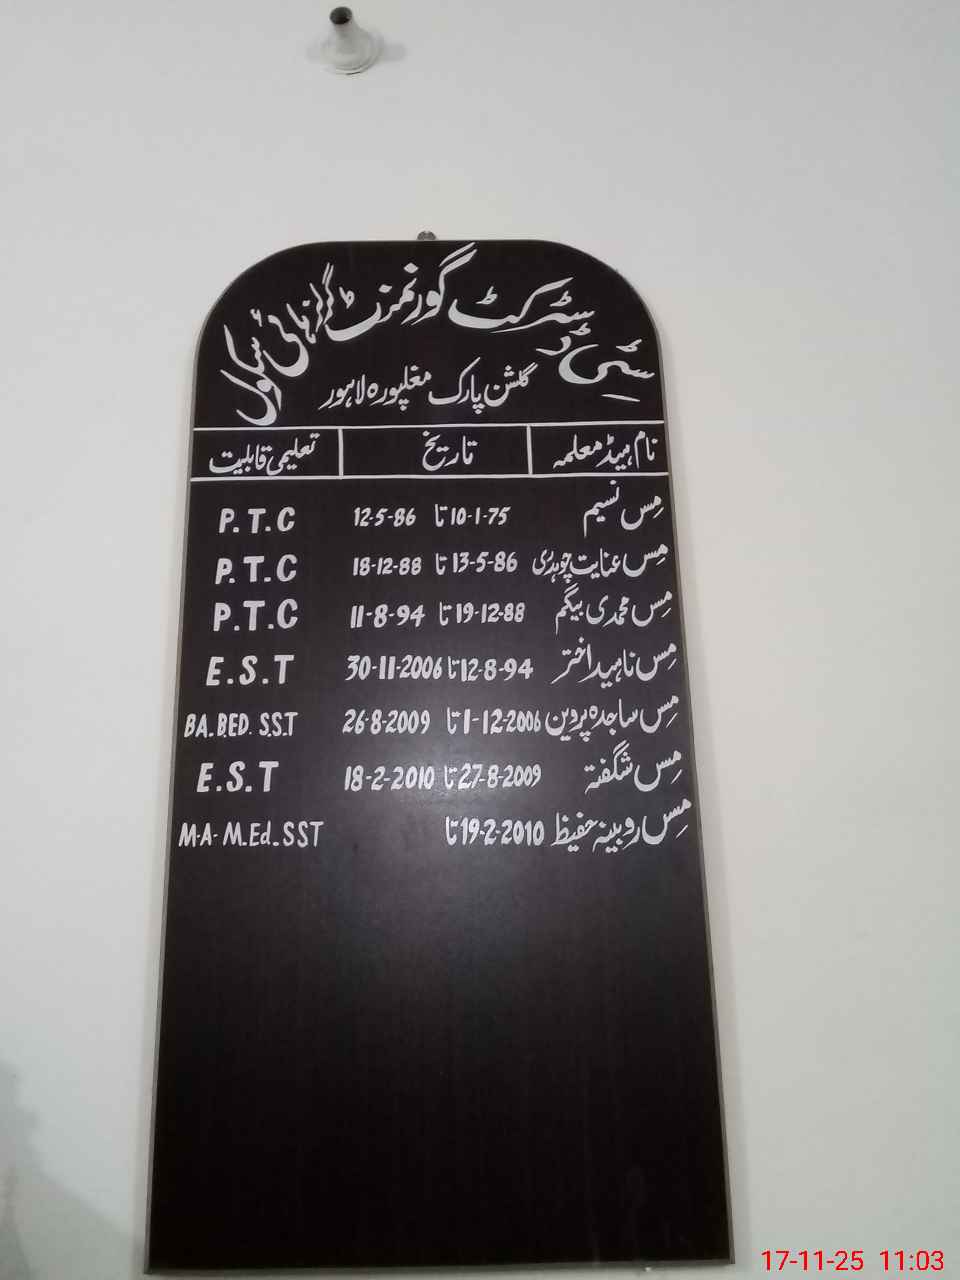 سٹی ڈسٹرکٹ گورنمنٹ گرلز ہائی سکول
گلشن پارک مغلپورہ لاہور
نام ہیڈ معلمہ تاریخ تعلیمی قابلیت
مس نسیم 10-1-75 تا 12-5-86 P.T.C
مس عنایت چوہدری 13-5-86 تا 18-12-88 P.T.C
مس محمدی بیگم 19-12-88 تا 11-8-94 P.T.C
مس ناہید اختر 12-8-94 تا 30-11-2006 E.S.T
مس ساجدہ پروین 1-12-2006 تا 26-8-2009 BA.BED. S.S.T
مس شگفتہ 27-8-2009 تا 18-2-2010 E.S.T
مس روبینہ حفیظ 19-2-2010 تا M-A- M.Ed.SST
17-11-25 11:03